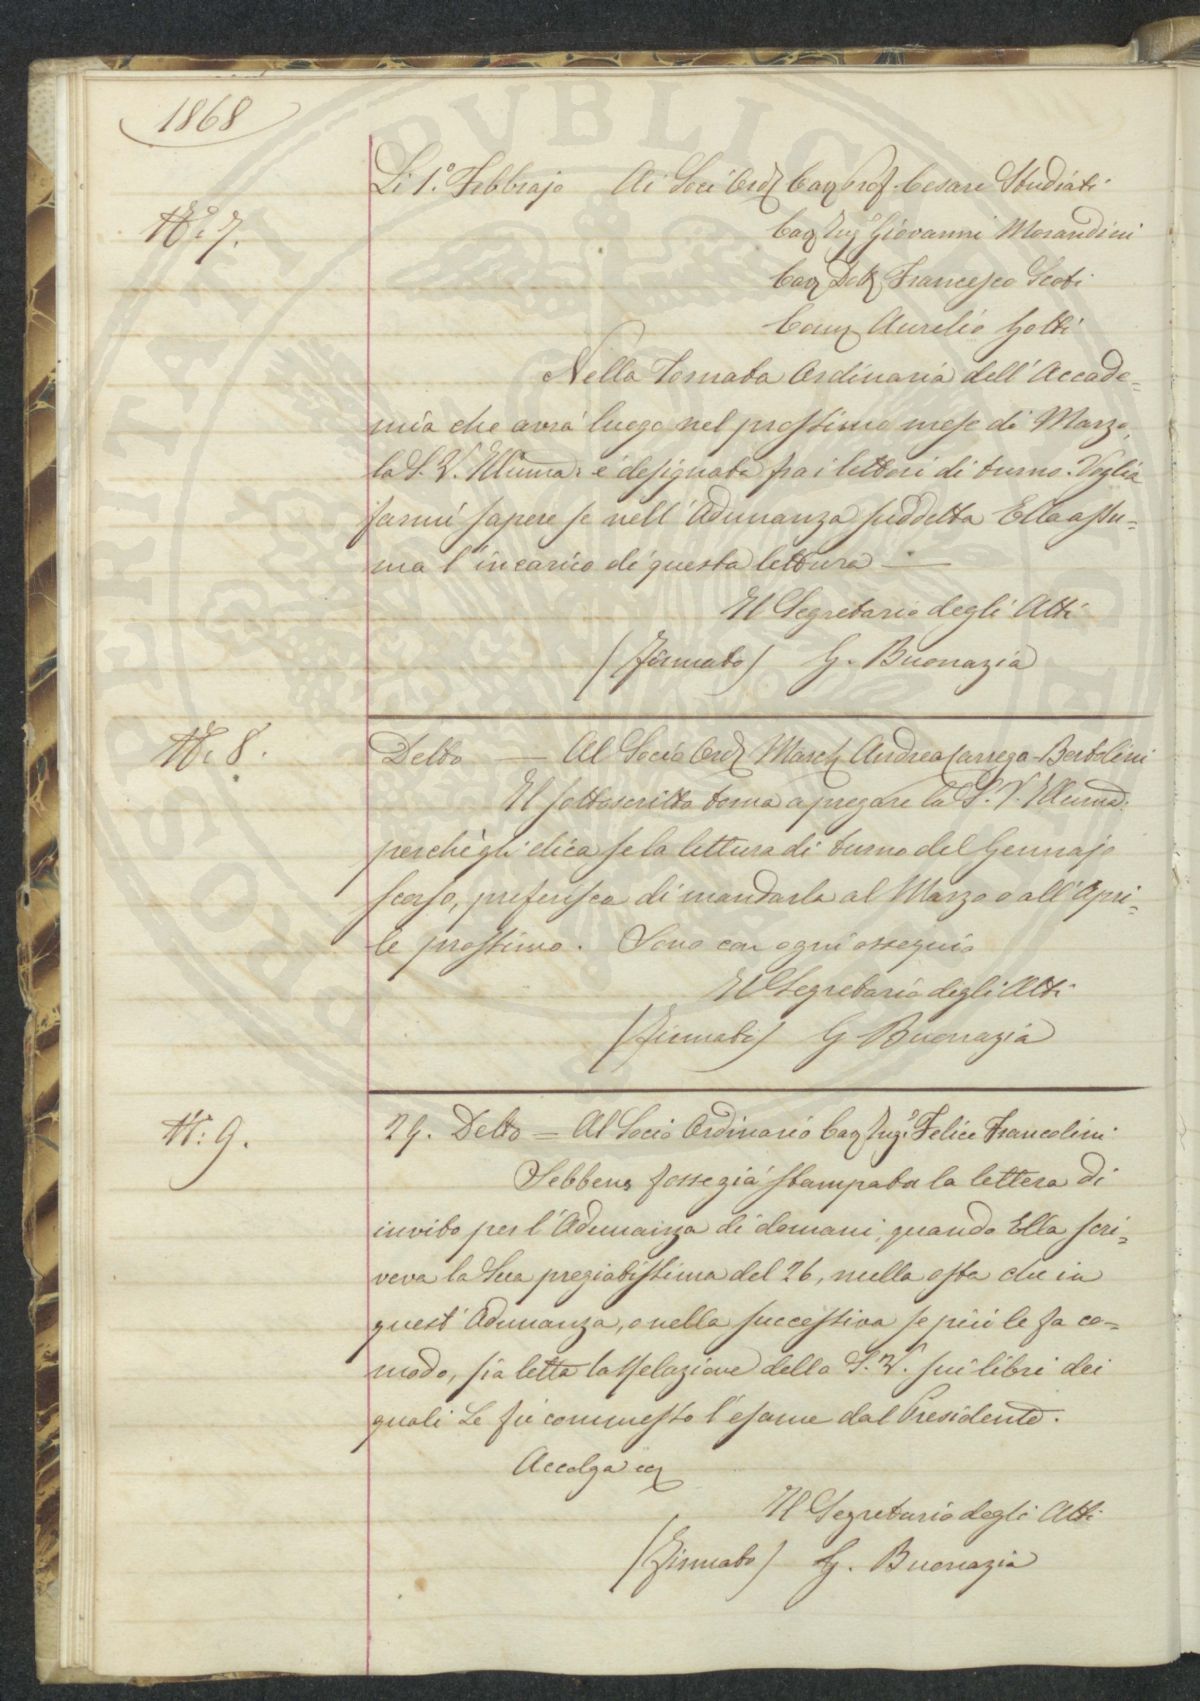 1868
Li 1.° Febbrajo Ai Soci Ord. Cav. Prof. Cesare Studiati
N.° 7.
Cav. Ing.e Giovanni Morandini
Cav. Dott. Francesco Scoti
Comm. Aurelio Gotti
Nella Tornata Ordinaria dell'Accade=
mia che avrà luogo nel prossimo mese di Marzo,
la S. V. Illuma: è designata fra i lettori di turno. Voglia
farmi sapere se nell'Adunanza suddetta Ella assu=
ma l'incarico di questa lettura —
Il Segretario degli Atti
(Firmato) G. Buonazia
N.° 8.
Detto — Al Socio Ord. March. Andrea Carrega-Bertolini
Il sottoscritto torna a pregare la S. V. Illuma:
perchè gli dica se la lettura di turno del Gennajo
scorso, preferisca di mandarla al Marzo o all'Apri=
le prossimo. Sono con ogni ossequio
Il Segretario degli Atti
(Firmato) G. Buonazia
N.° 9.
29. Detto = Al Socio Ordinario Cav. Ing.e Felice Francolini
Sebbene fosse già stampata la lettera di
invito per l'Adunanza di domani, quando Ella scri=
veva la Sua pregiatissima del 26, nulla osta che in
quest'Adunanza, o nella successiva se più le fa co=
modo, sia letta la Relazione della S. V. sui libri dei
quali Le fu commesso l'esame dal Presidente.
Accolga ec.
Il Segretario degli Atti
(Firmato) G. Buonazia